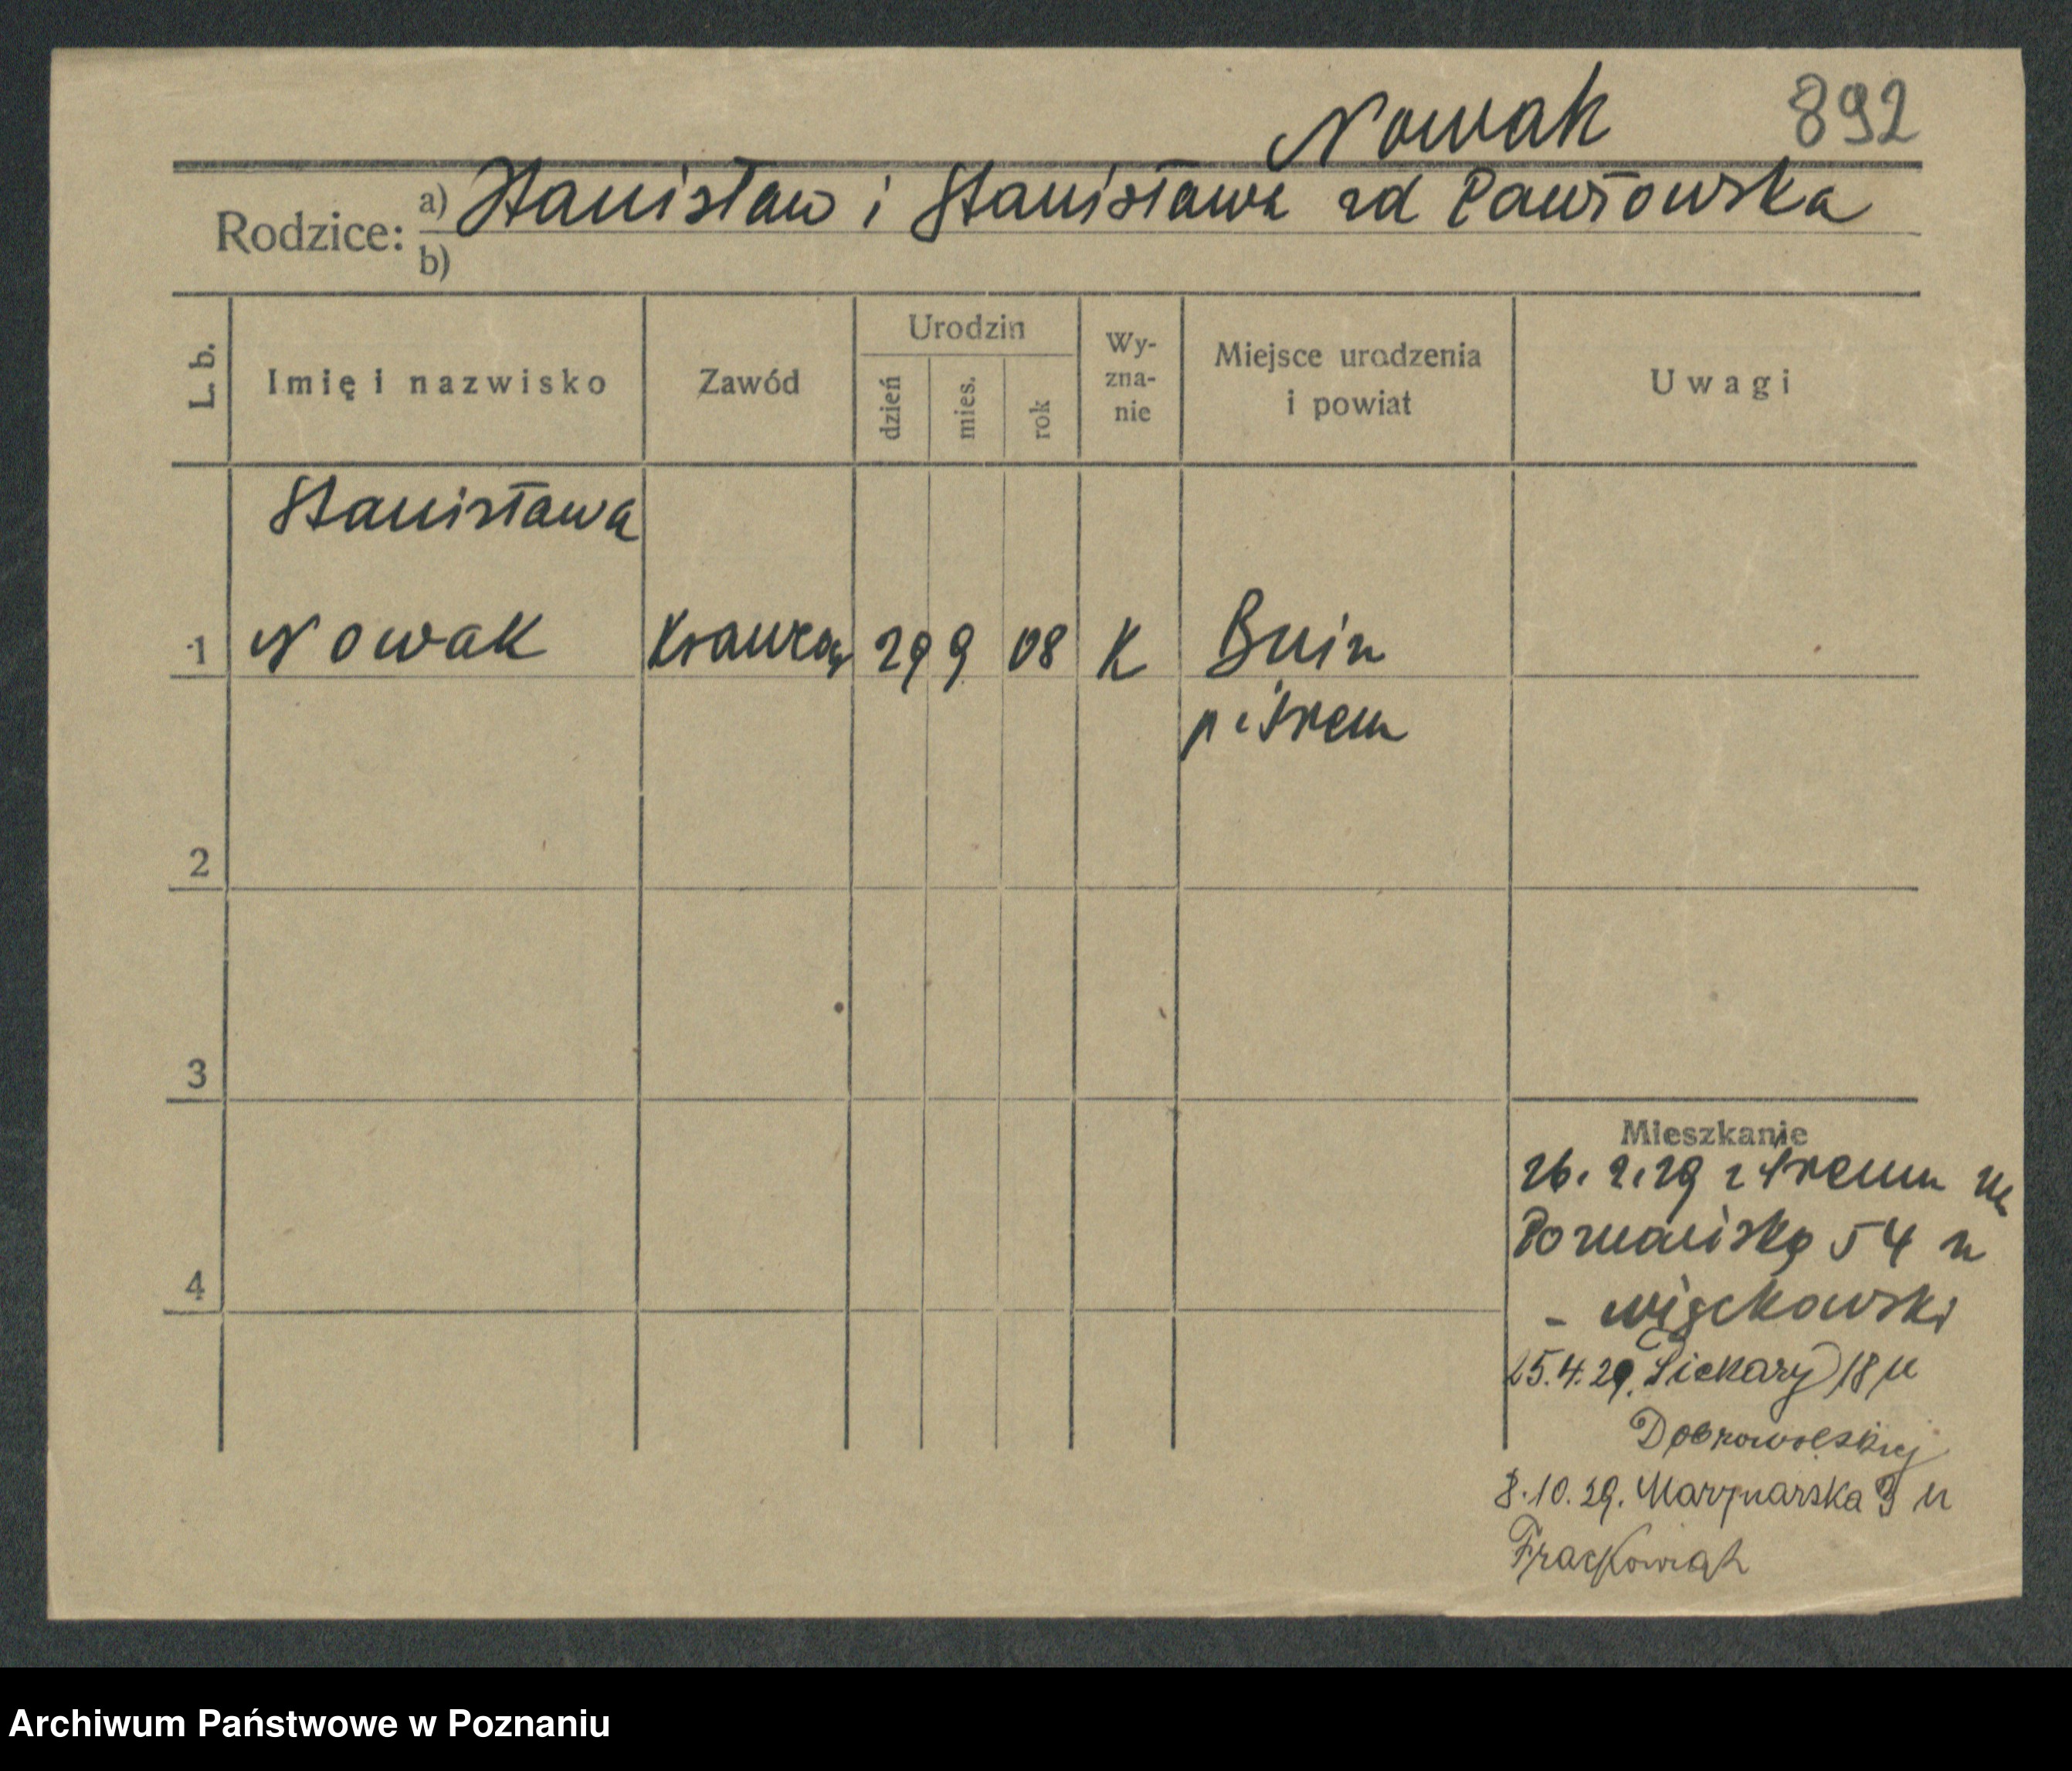 Nowak 892
Rodzice: a) Stanisław i Stanisława zd Pawłowska
b)
L. b. Imię i nazwisko Zawód Urodzin dzień mies. rok Wy-zna-nie Miejsce urodzenia i powiat Uwagi
Stanisława
1 Nowak 29 9 08 K Bnin
p. Śrem
2
3
Mieszkanie
26. 2. 29 z Śremu
54
4
- Więckowski
25.4.29. Piekary 18 u
Dobrowolskiej
8.10.29. Marynarska 3 u
Frąckowiak
Archiwum Państwowe w Poznaniu